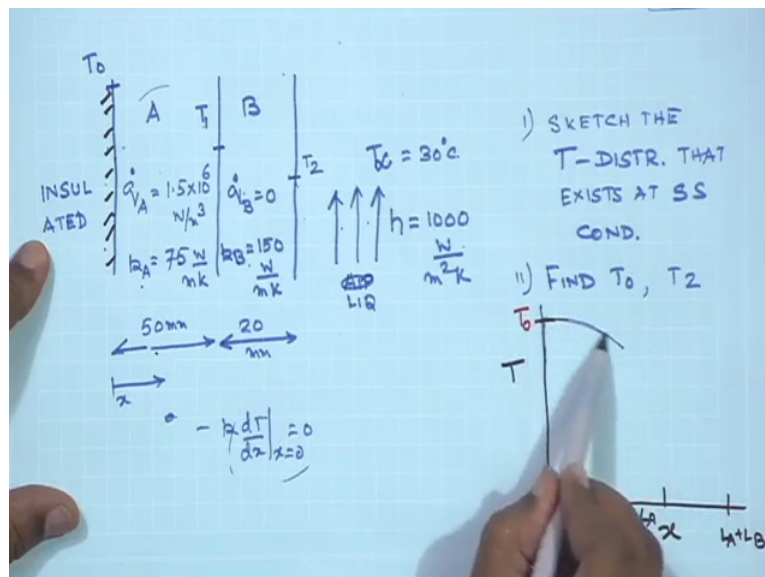 T0
A
T1
B
T2
INSUL
ATED
q̇A = 1.5x10^6
W/m^3
q̇B = 0
kA = 75 W/mK
kB = 150
W/mK
T∞ = 30°C
h = 1000
W/m^2K
LIQ
50mm
20
mm
x
- k dT/dx |x=0 = 0
I) SKETCH THE
T-DISTR. THAT
EXISTS AT SS
COND.
II) FIND T0, T2
T0
T
LA
x
LA+LB